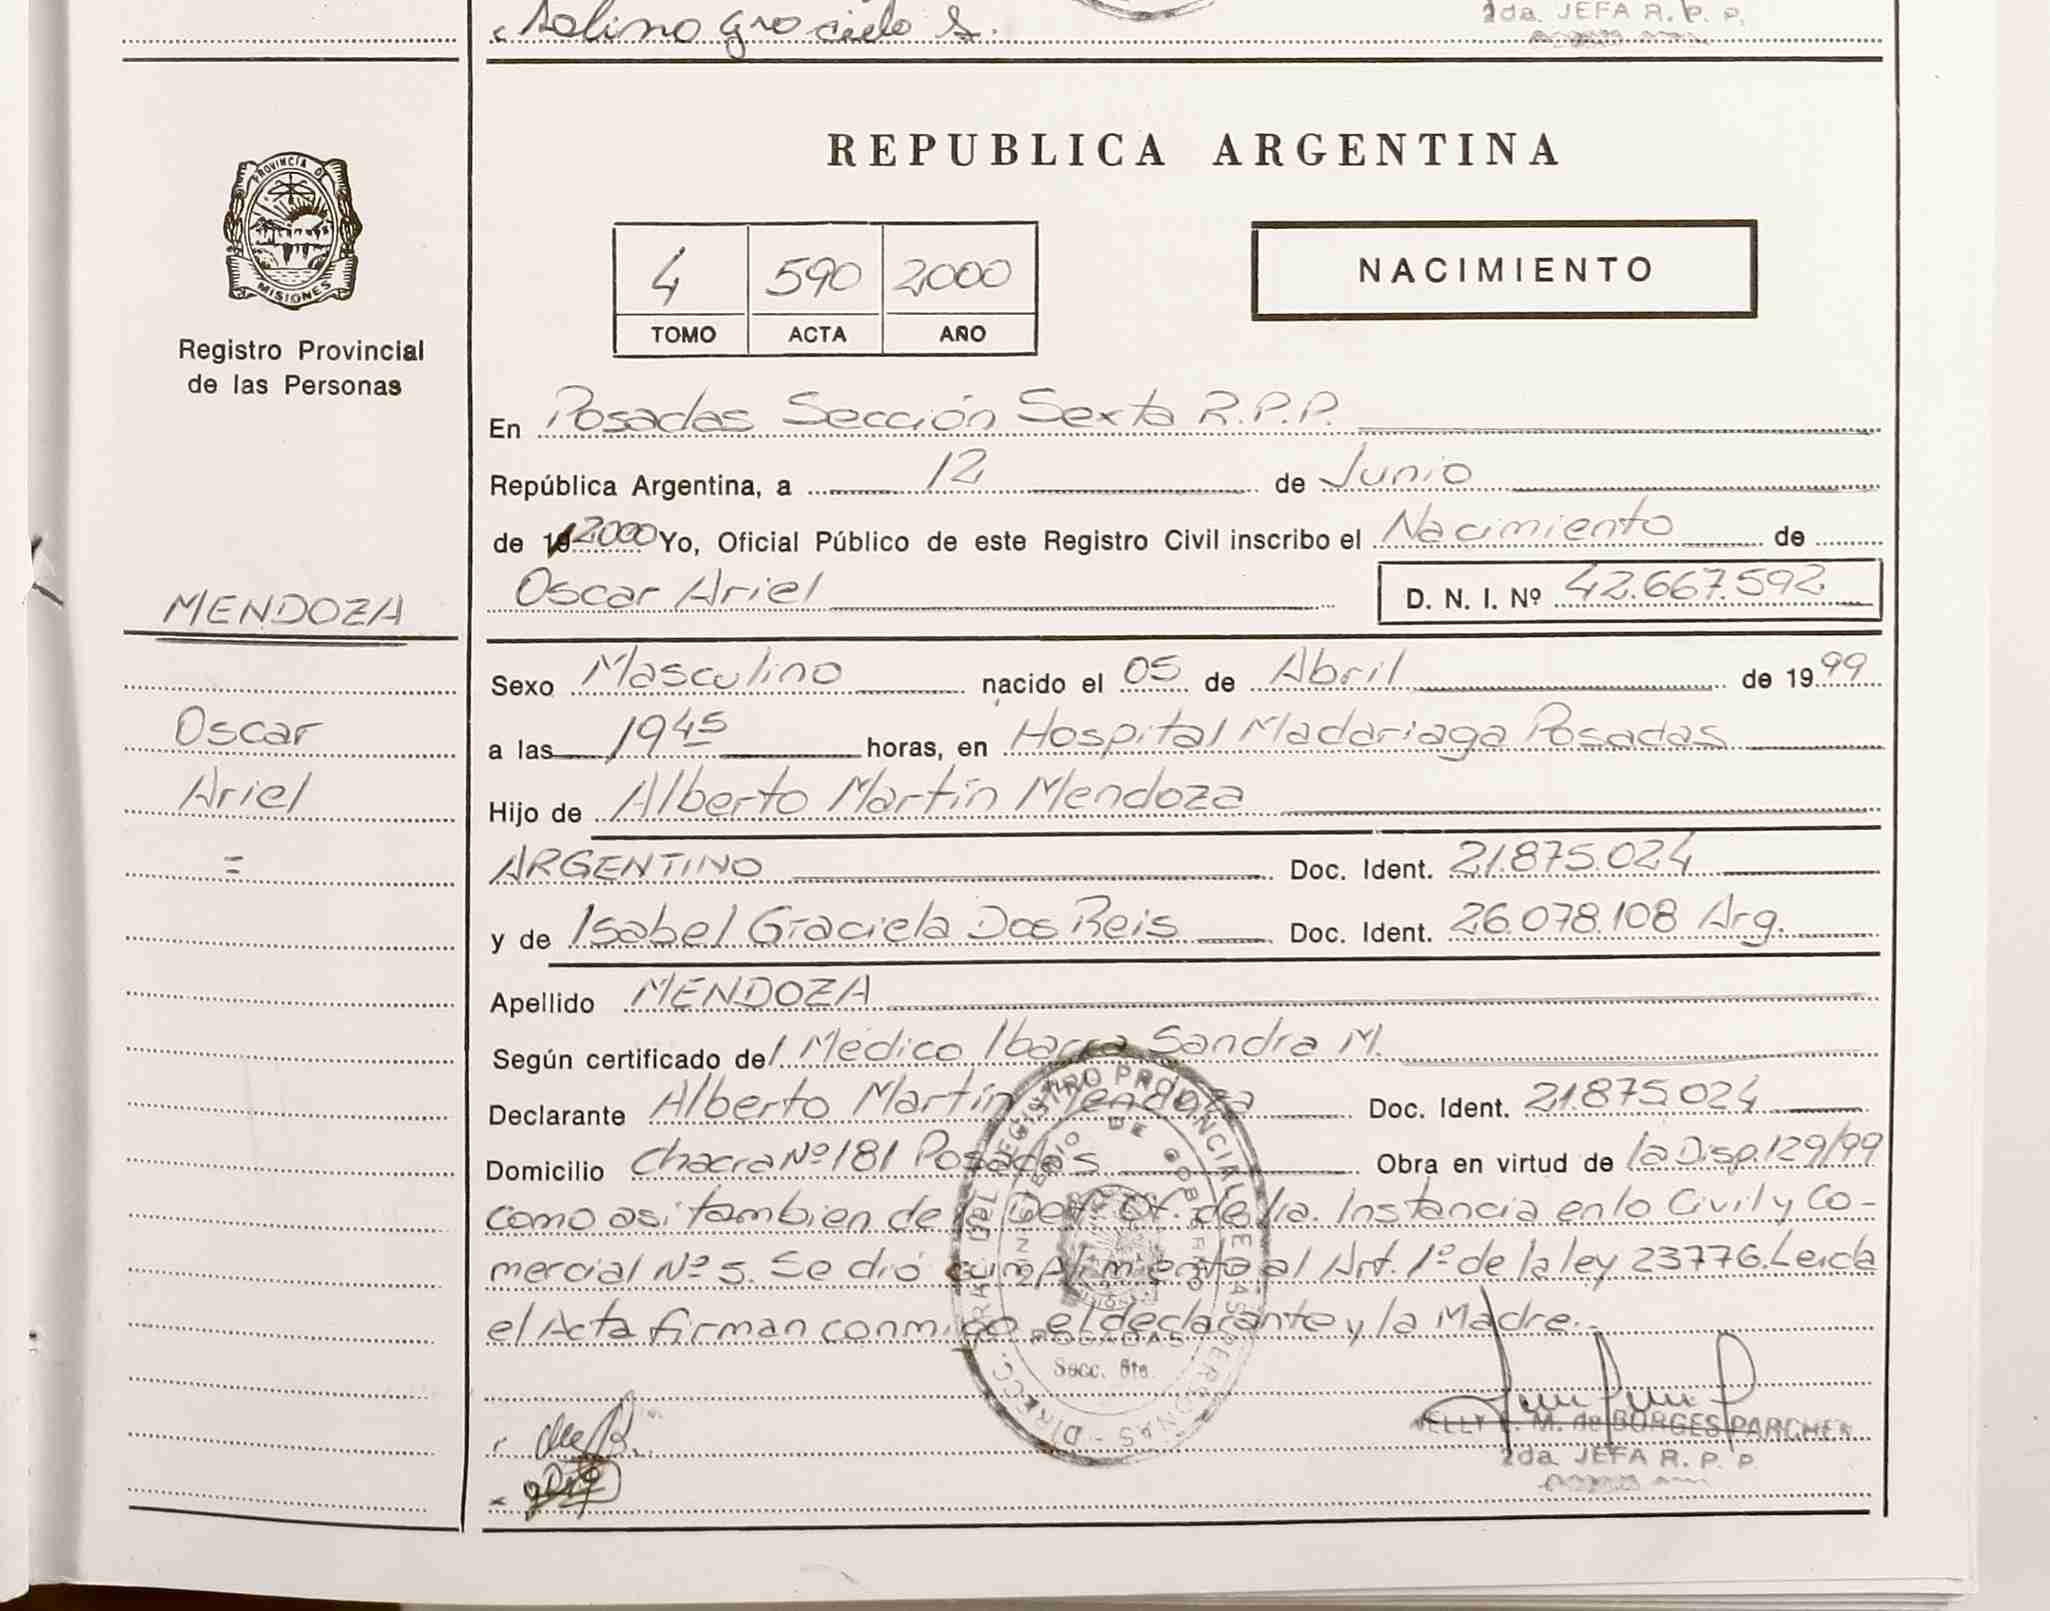 Graciela S.
2da. JEFA R. P. P.
PROVINCIA D
MISIONES
Registro Provincial
de las Personas
MENDOZA
Oscar
Ariel
=
REPUBLICA ARGENTINA
4 590 2000
TOMO ACTA AÑO
NACIMIENTO
En Posadas Sección Sexta R.P.P.
República Argentina, a 12 de Junio
de 19 2000 Yo, Oficial Público de este Registro Civil inscribo el Nacimiento de
Oscar Ariel D. N. I. Nº 42.667.592
Sexo Masculino nacido el 05 de Abril de 1999
a las 19 45 horas, en Hospital Madariaga Posadas
Hijo de Alberto Martín Mendoza
ARGENTINO Doc. Ident. 21.875.024
y de Isabel Graciela Dos Reis Doc. Ident. 26.078.108 Arg.
Apellido MENDOZA
Según certificado del Médico Ibarra Sandra M.
Declarante Alberto Martín Mendoza Doc. Ident. 21.875.024
Domicilio Chacra Nº 181 Posadas Obra en virtud de la Disp. 129/99
como asi tambien de la Def. Of. de 1ra. Instancia en lo Civil y Co-
mercial Nº 5. Se dió cumplimiento al Art. 1º de la ley 23776. Leida
el Acta firman conmigo el declarante y la Madre.
REGISTRO PROVINCIAL DE LAS PERSONAS
POSADAS
Secc. 6ta.
NELLY M. de BORGES PARCHEN
2da. JEFA R. P. P.